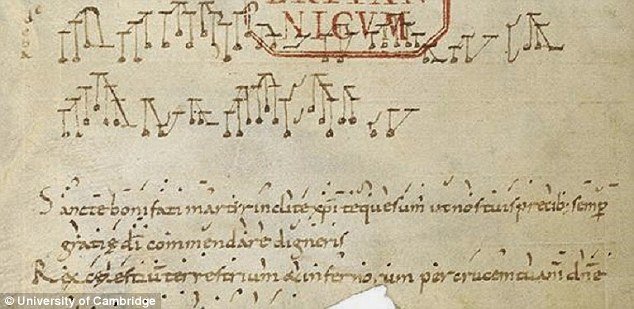 BRITAN
NICVM
Sancte bonifati martir inclite xp̄i te quesum̄ ut nos tuis precib; semp̄
gratię dī commendare digneris
Rex cęlestiū terrestrium & infernorum per crucem tuam dn̄e
© University of Cambridge